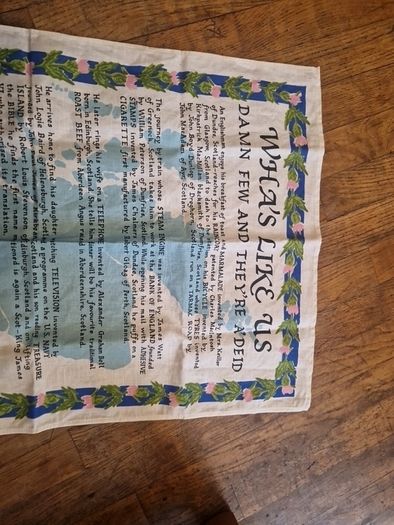 WHA'S LIKE US
DAMN FEW AND THEY'RE A'DEID
An Englishman enjoys his breakfast of toast and MARMALADE invented by Mrs. Keiller
of Dundee, Scotland - reaches for his RAINCOAT patented by Charles Macintosh
from Glasgow, Scotland to dash to the station on his BICYCLE invented by
Kirkpatrick MacMillan, Blacksmith of Dumfries, Scotland whose TYRES invented
by John Boyd Dunlop of Dreghorn, Scotland run on a TARMAC ROAD by
John MacAdam of Ayr, Scotland.
The journey by train whose STEAM ENGINE was invented by James Watt
of Greenock, Scotland takes him to work at the BANK OF ENGLAND founded
by William Paterson of Dumfries, Scotland. While opening his mail with ADHESIVE
STAMPS invented by James Chalmers of Dundee, Scotland, he puffs on a
CIGARETTE first manufactured by Robert Gloag of Perth, Scotland.
He later rings his wife on a TELEPHONE invented by Alexander Graham Bell
born in Edinburgh, Scotland. She tells him dinner will be his favourite traditional
ROAST BEEF from Aberdeen Angus raised in Aberdeenshire, Scotland.
He arrives home to find his daughter watching TELEVISION invented by
John Logie Baird of Helensburgh, Scotland a programme on the U.S. NAVY
founded by John Paul Jones of Scotland and his son reading TREASURE
ISLAND by Robert Louis Stevenson of Edinburgh, Scotland. Lifting
the BIBLE he finds the first man mentioned is again a Scot - King James
authorised its translation.